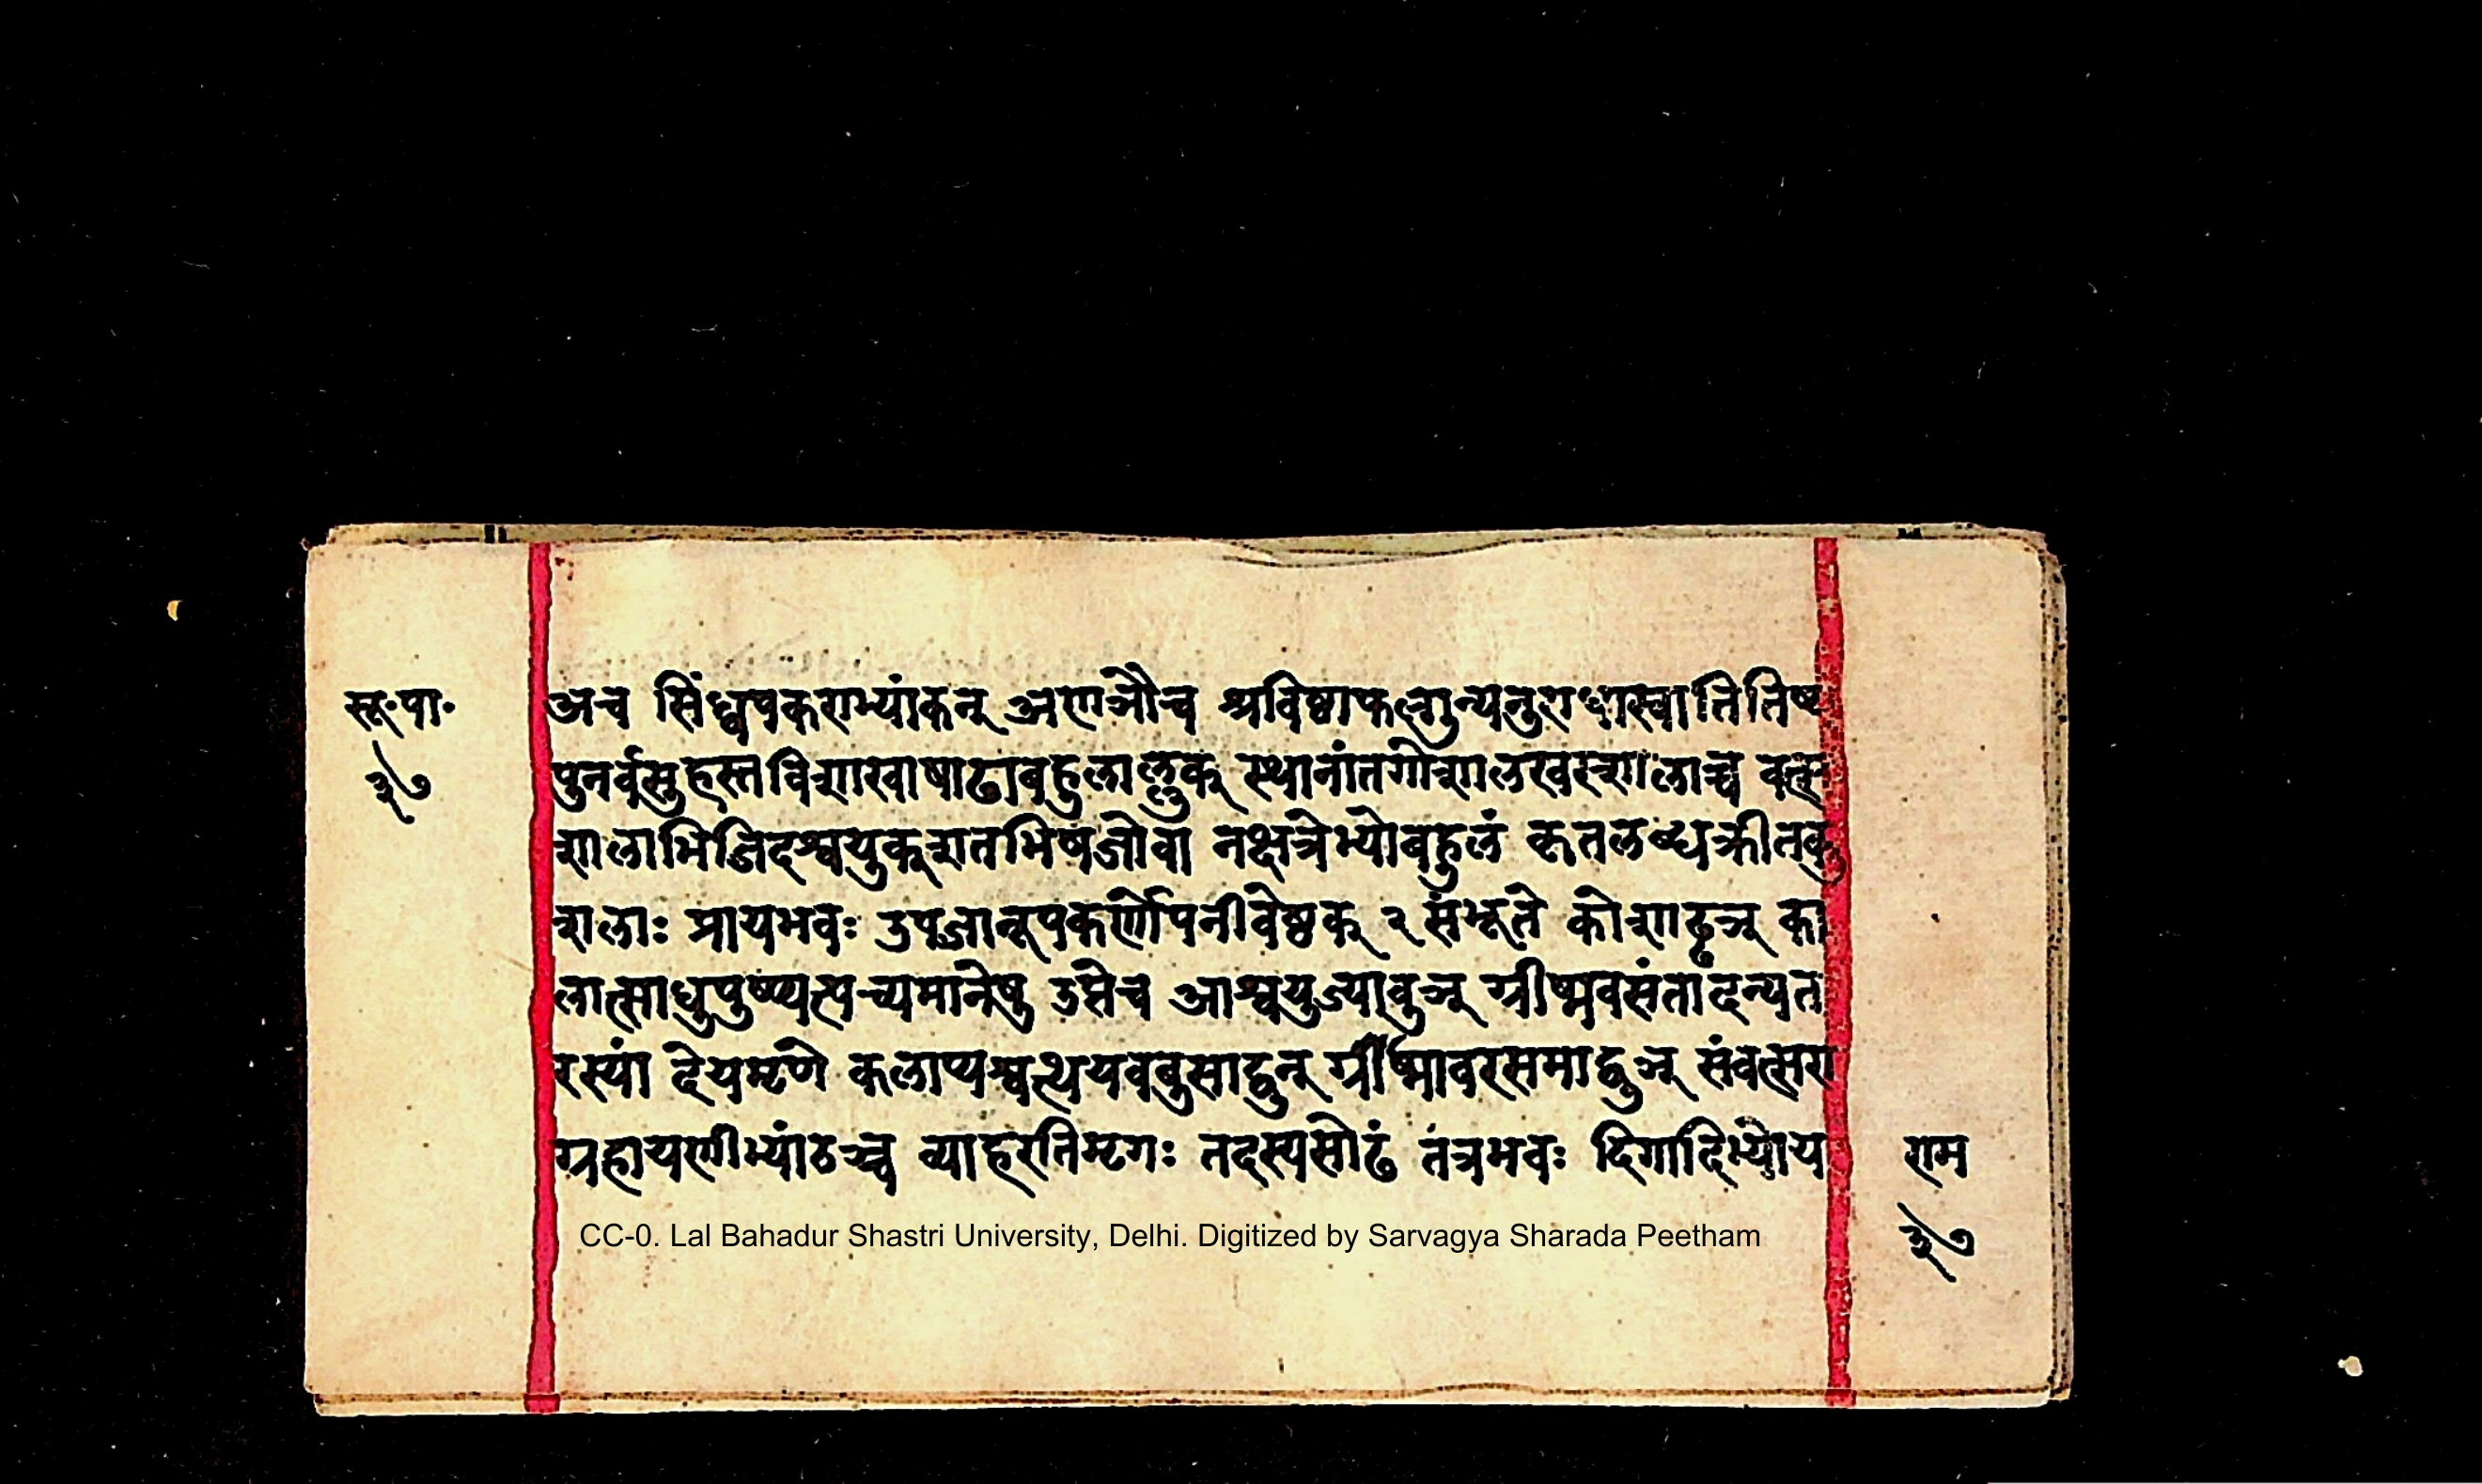 सू॰पा॰
३७
अच सिंध्वपकराभ्यांकन् अणञौच श्रविष्ठाफल्गुन्यनुराधास्वातितिष्य
पुनर्वसुहस्तविशाखाषाढाबहुलाल्लुक् स्थानांतगोशालखरशालाच्च वत्स
शालाभिजिदश्वयुक्शतभिषजोवा नक्षत्रेभ्योबहुलं कृतलब्धक्रीतकु
शलाः प्रायभवः उपजानूपकर्णोपनीवेष्ठक् २ संभूते कोशाढ्ढञ् का
लात्साधुपुष्प्यत्पच्यमानेषु उप्तेच आश्वयुज्यावुञ् ग्रीष्मवसंतादन्यत
रस्यां देयमृणे कलाप्यश्वत्थयवबुसाद्वुन् ग्रीष्मावरसमाद्वुञ् संवत्सरा
ग्रहायणीभ्यांठञ्च व्याहरतिमृगः तदस्यसोढं तत्रभवः दिगादिभ्योय
राम
३७
CC-0. Lal Bahadur Shastri University, Delhi. Digitized by Sarvagya Sharada Peetham